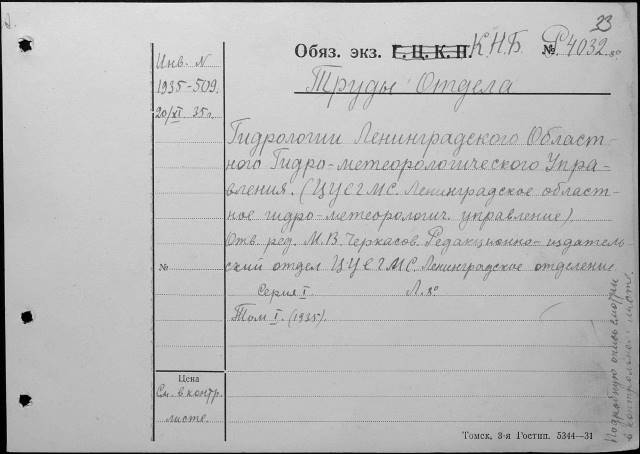 2.
23
Инв. N
1935-509.
20/XI 35 г.
Обяз. экз. Г.Ц.К.П. К.Н.Б № Р4032.8º
Труды Отдела
Гидрологии Ленинградского Област-
ного Гидро-метеорологического Упра-
вления. (ЦУЕГМС. Ленинградское област-
ное гидро-метеорологич. управление)
Отв. ред. М.В. Черкасов. Редакционно-издатель-
ский отдел ЦУЕГМС. Ленинградское отделение.
№
Серия I. Л. 8º
Том I. (1935).
Цена
См. в контр.
листе.
Подробную опись смотри
в контрольном листе.
Томск, 3-я Гостип. 5344—31